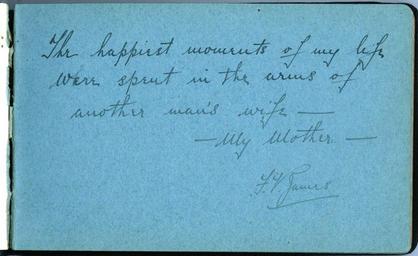 The happiest moments of my life
Were spent in the arms of
another man's wife —
— My Mother —